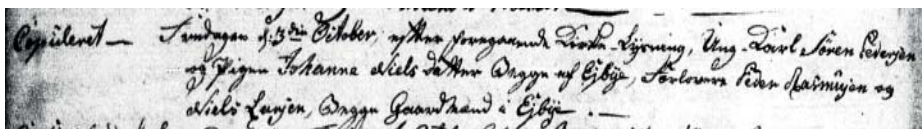 Copuleret — Fredagen d: 3die October, efter foregaaende Kirke-Lysning, Ung-Karl Sören Pedersen
og Pigen Johanne Niels datter Begge af Ejbÿe, Forlovere Peder Rasmusen og
Niels Larsen, Begge Gaardmænd i Ejbÿe. —